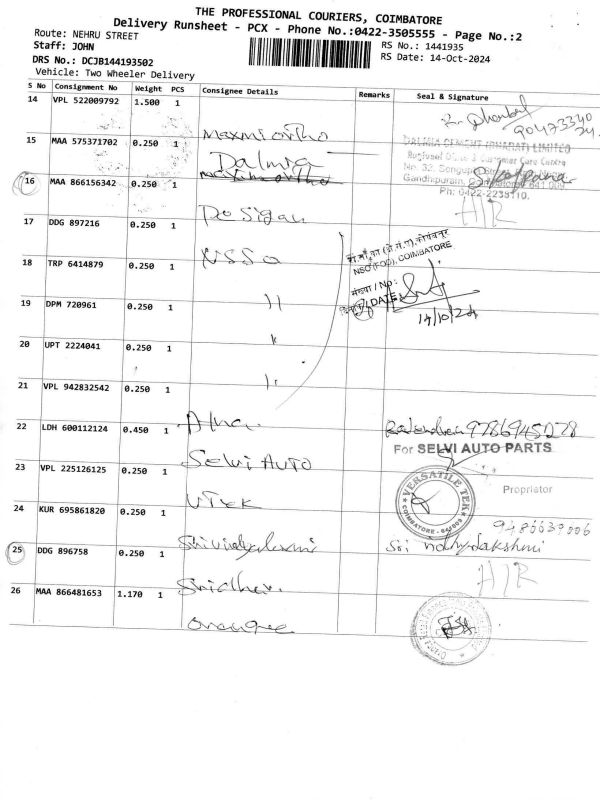 THE PROFESSIONAL COURIERS, COIMBATORE
Delivery Runsheet - PCX - Phone No.:0422-3505555 - Page No.:2
Route: NEHRU STREET
RS No.: 1441935
Staff: JOHN
RS Date: 14-Oct-2024
DRS No.: DCJB144193502
Vehicle: Two Wheeler Delivery
S No Consignment No Weight PCS Consignee Details Remarks Seal & Signature
14 VPL 522009792 1.500 1
Maxmi ortho
15 MAA 575371702 0.250 1
Dalmia
DALMIA CEMENT (BHARAT) LIMITED
Regional Office & Customer Care Centre
Gandhipuram, Coimbatore 641 009
Ph: 0422-2235110.
Skalpana
16 MAA 866156342 0.250 1
Desigan
H/R
17 DDG 897216 0.250 1
NSSO
NSO (FOD), COIMBATORE
18 TRP 6414879 0.250 1
संख्या / No :
/ DATE
14/10/24
"
19 DPM 720961 0.250 1
"
20 UPT 2224041 0.250 1
"
21 VPL 942832542 0.250 1
22 LDH 600112124 0.450 1
9786945228
Selvi Auto
For SELVI AUTO PARTS
23 VPL 225126125 0.250 1
Proprietor
VTEK
VERSATILE TEK
COIMBATORE
24 KUR 695861820 0.250 1
Srividyalaxmi
Sri vidhyalakshmi
25 DDG 896758 0.250 1
Sridhar
H/R
26 MAA 866481653 1.170 1
Orangee